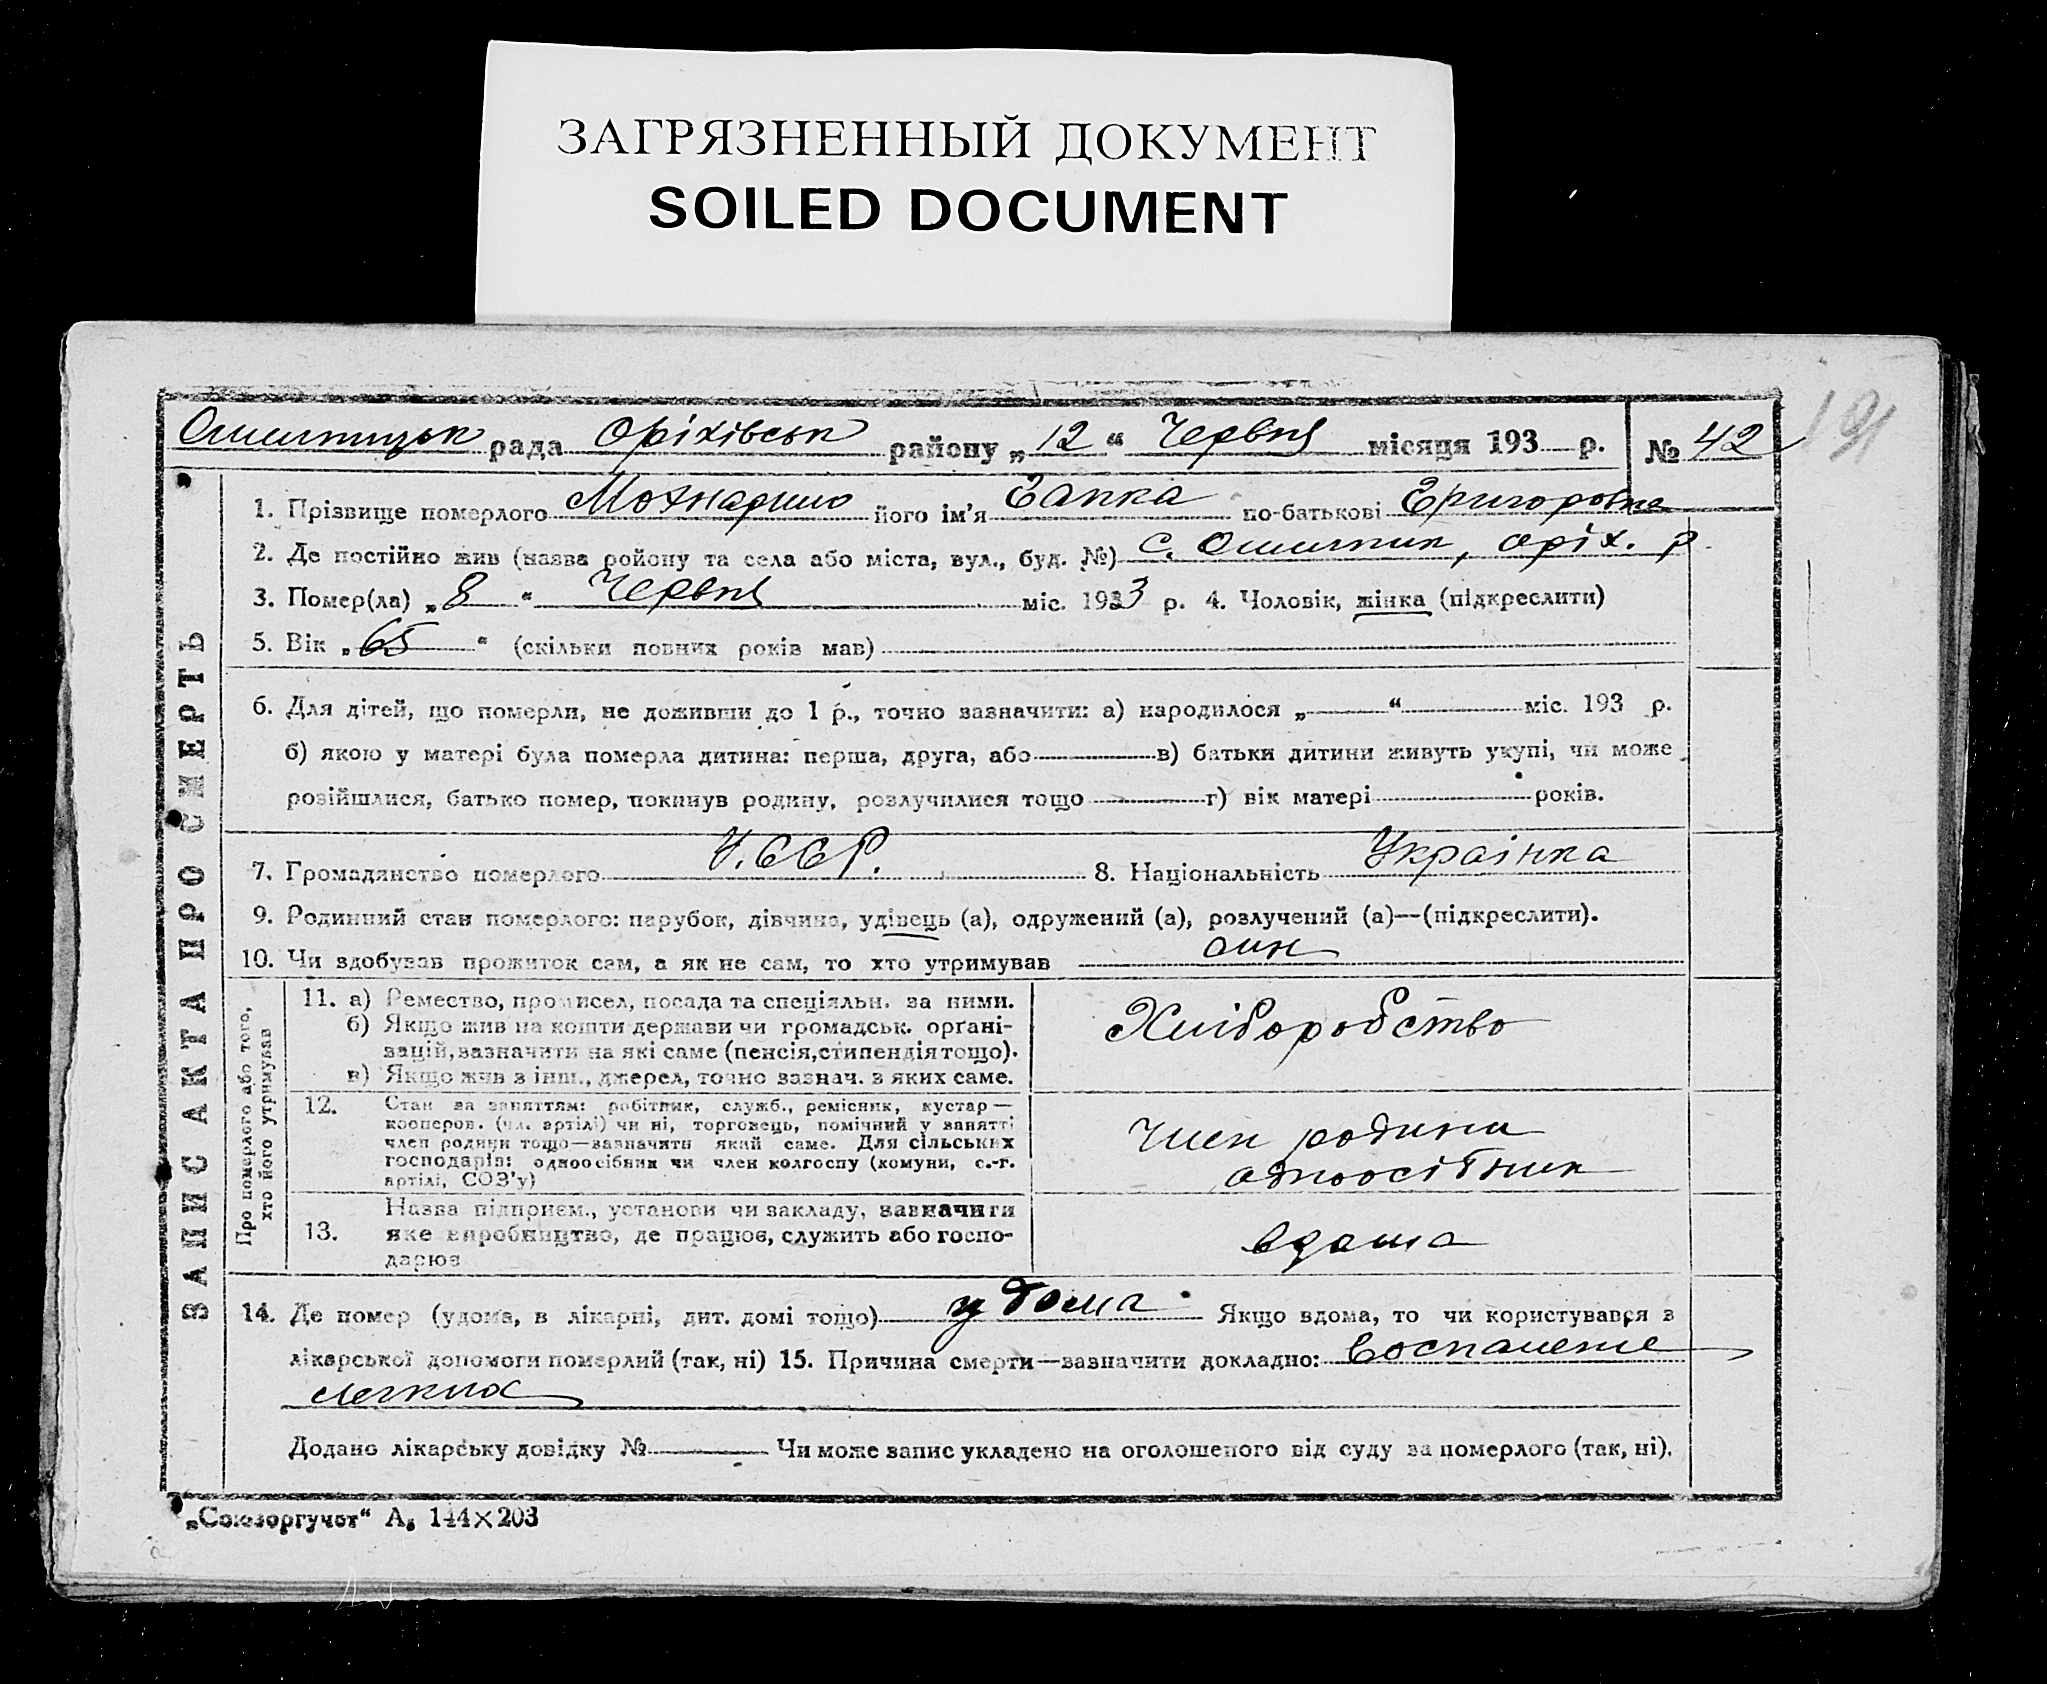 ЗАГРЯЗНЕННЫЙ ДОКУМЕНТ
SOILED DOCUMENT
191
рада Оріхівськ району „ 12 “ Червня місяця 193 р. № 42
ЗАПИС АКТА ПРО СМЕРТЬ
1. Прізвище померлого його ім'я Гапка по-батькові Григоровна
2. Де постійно жив (назва району та села або міста, вул., буд. №) с. Омельник, оріх. р.
3. Помер(ла) „ 8 “ Червня міс. 1933 р. 4. Чоловік, жінка (підкреслити)
5. Вік „ 65 “ (скільки повних років мав)
6. Для дітей, що померли, не доживши до 1 р., точно зазначити: а) народилося „ “ міс. 193 р.
б) якою у матері була померла дитина: перша, друга, або в) батьки дитини живуть укупі, чи може
розійшлися, батько помер, покинув родину, розлучилися тощо г) вік матері років.
7. Громадянство померлого У.ССР. 8. Національність Українка
9. Родинний стан померлого: парубок, дівчина, удівець (а), одружений (а), розлучений (а)—(підкреслити).
10. Чи здобував прожиток сам, а як не сам, то хто утримував син
Про померлого або того,
хто його утримував
11. а) Ремество, промисел, посада та спеціяльн. за ними.
б) Якщо жив на кошти держави чи громадськ. орґані-
зацій, зазначити на які саме (пенсія, стипендія тощо).
в) Якщо жив з інш., джерел, точно зазнач. з яких саме.
Хліборобство
12. Стан за заняттям: робітник, служб., ремісник, кустар—
кооперов. (чл. артілі) чи ні, торговець, помічний у занятті
член родини тощо—зазначити який саме. Для сільських
господарів: одноосібник чи член колгоспу (комуни, с.-г.
артілі, СОЗ'у)
Член родини
одноосібник
13. Назва підприєм., установи чи закладу, зазначити
яке виробництво, де працює, служить або госпо-
дарює
вдома
14. Де помер (удома, в лікарні, дит. домі тощо) удома Якщо вдома, то чи користувався з
лікарської допомоги померлий (так, ні) 15. Причина смерти—зазначити докладно: Воспаление
легких
Додано лікарську довідку № Чи може запис укладено на оголошеного від суду за померлого (так, ні).
„Союзоргучот“ А₅ 144×203